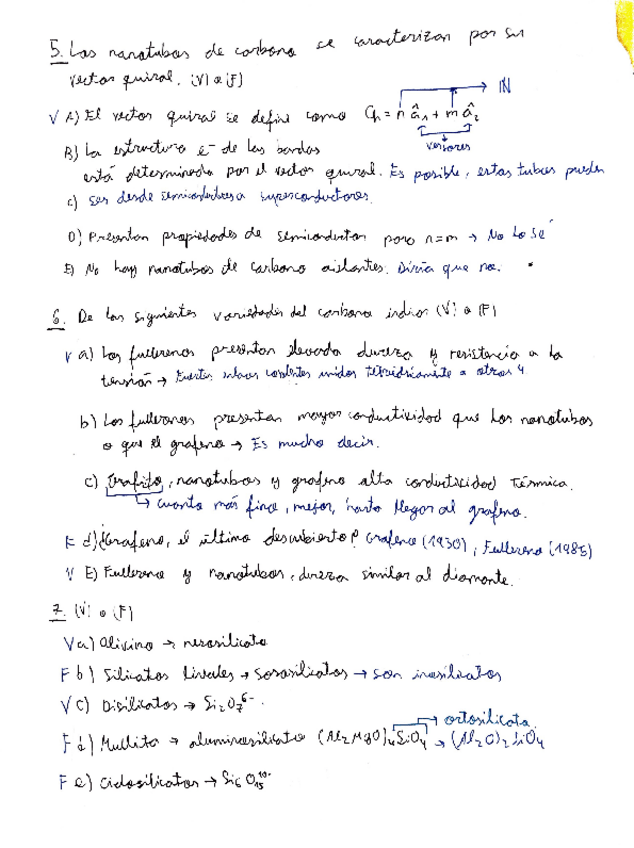 5. Los nanotubos de carbono se caracterizan por su
vector quiral. (V) o (F)
→ IN
V A) El vector quiral se define como Ch = n â1 + m â2
versores
B) La estructura e- de las bandas
está determinada por el vector quiral. Es posible, estos tubos pueden
C) ser desde semiconductores a superconductores.
D) Presentan propiedades de semiconductor para n=m → No lo sé
E) No hay nanotubos de carbono aislantes. Diría que no.
6. De las siguientes variedades del carbono indicar (V) o (F)
V a) Los fullerenos presentan elevada dureza y resistencia a la
tensión → Fuertes enlaces covalentes unidos tetraédricamente a otros 4
b) Los fullerenos presentan mayor conductividad que los nanotubos
o que el grafeno → Es mucho decir.
c) Grafito, nanotubos y grafeno alta conductividad térmica.
↳ cuanto más fino, mejor, hasta llegar al grafeno.
F d) ¿Grafeno, el último descubierto? Grafeno (1930), Fullereno (1985)
V E) Fullereno y nanotubos, dureza similar al diamante.
7. (V) o (F)
V a) Olivino → nesosilicato
F b) Silicatos lineales → sorosilicatos → son inosilicatos
V c) Disilicatos → Si2O7 6-
→ ortosilicato
F d) Mullita → aluminosilicato (Al2MgO)4 SiO4 → (Al2O)2 SiO4
F e) Ciclosilicatos → Si6O15 10-